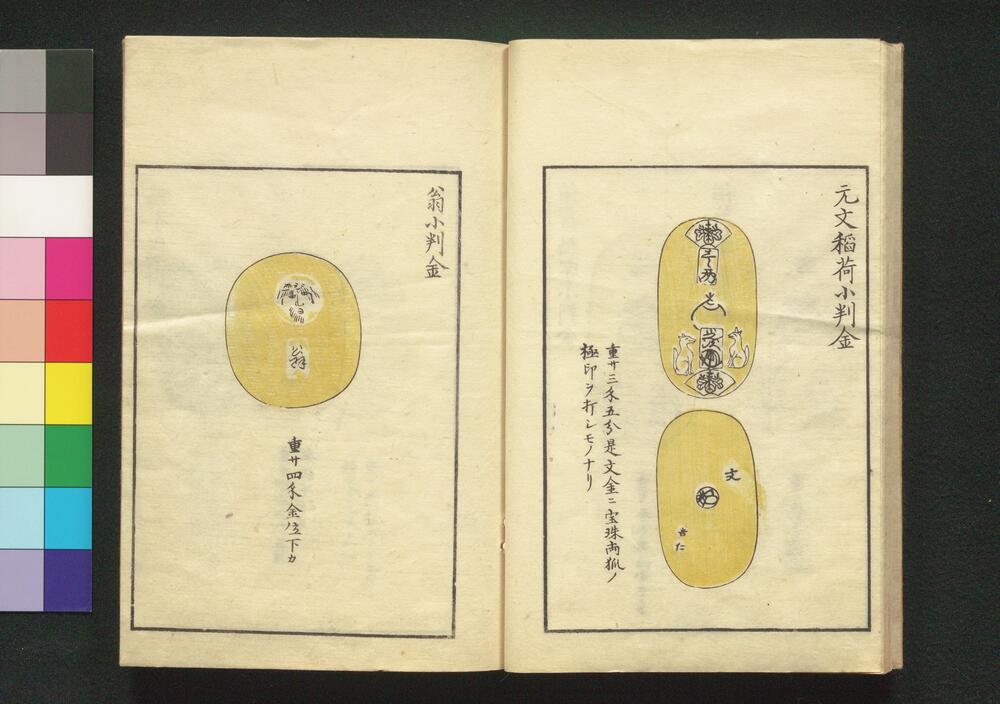 元文稲荷小判金
壱両
文
吉
仁
重サ三匁五分是文金ニ宝珠両狐ノ
極印ヲ打シモノナリ
翁小判金
翁
重サ四匁金位下カ